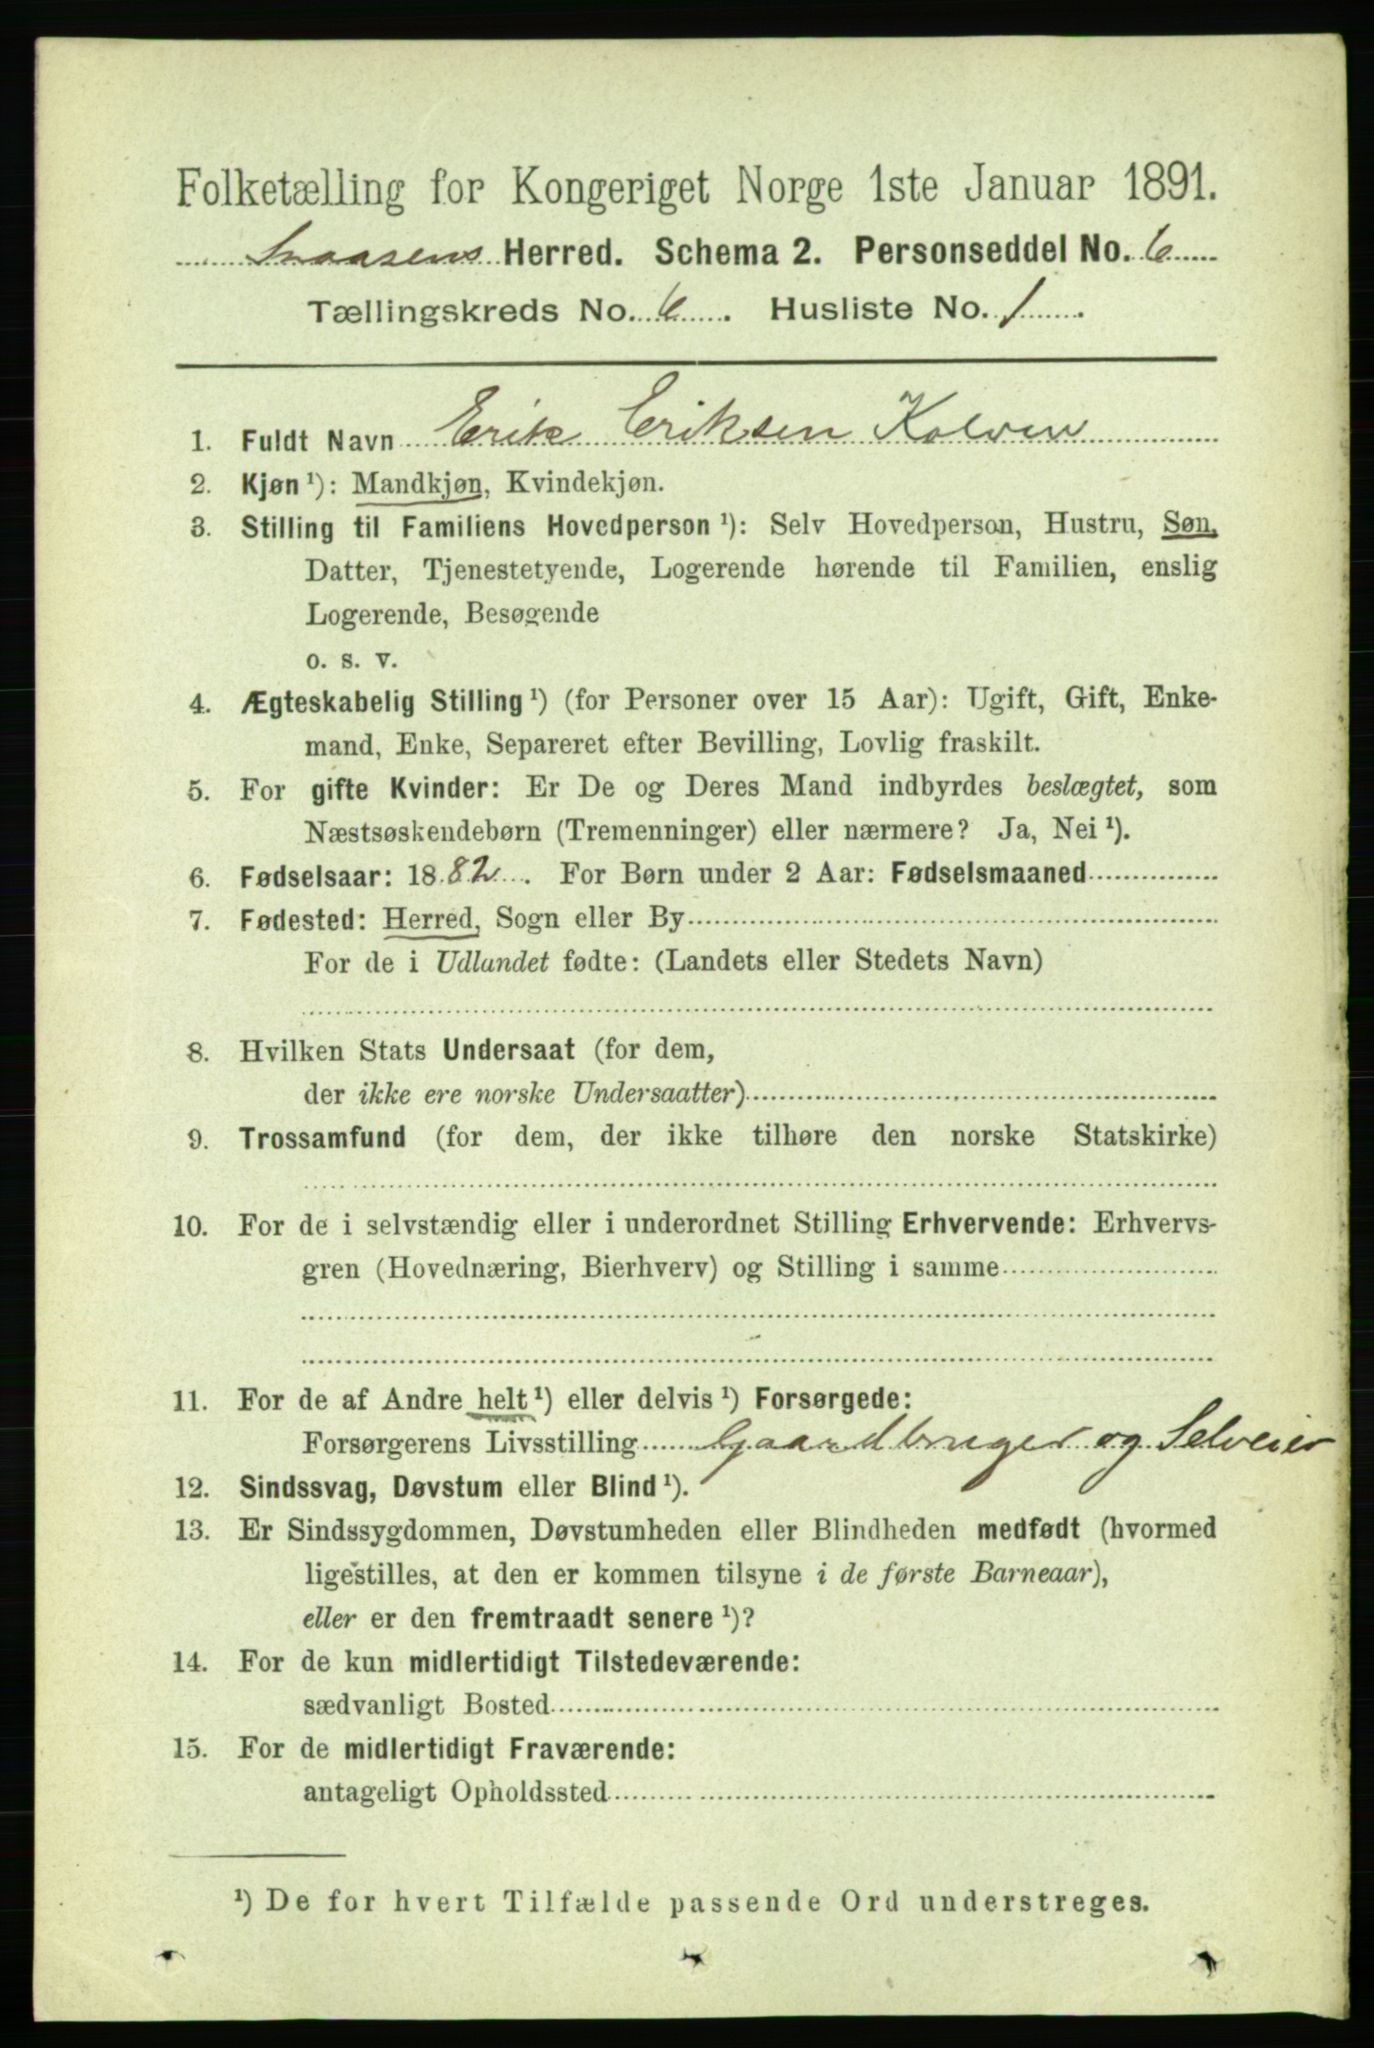 Folketælling for Kongeriget Norge 1ste Januar 1891.
Snaasens Herred. Schema 2. Personseddel No. 6
Tællingskreds No. 6. Husliste No. 1.
1. Fuldt Navn Erik Eriksen Kolven
2. Kjøn ¹): Mandkjøn, Kvindekjøn.
3. Stilling til Familiens Hovedperson ¹): Selv Hovedperson, Hustru, Søn,
Datter, Tjenestetyende, Logerende hørende til Familien, enslig
Logerende, Besøgende
o. s. v.
4. Ægteskabelig Stilling ¹) (for Personer over 15 Aar): Ugift, Gift, Enke-
mand, Enke, Separeret efter Bevilling, Lovlig fraskilt.
5. For gifte Kvinder: Er De og Deres Mand indbyrdes beslægtet, som
Næstsøskendebørn (Tremenninger) eller nærmere? Ja, Nei ¹).
6. Fødselsaar: 1882. For Børn under 2 Aar: Fødselsmaaned
7. Fødested: Herred, Sogn eller By
For de i Udlandet fødte: (Landets eller Stedets Navn)
8. Hvilken Stats Undersaat (for dem,
der ikke ere norske Undersaatter)
9. Trossamfund (for dem, der ikke tilhøre den norske Statskirke)
10. For de i selvstændig eller i underordnet Stilling Erhvervende: Erhvervs-
gren (Hovednæring, Bierhverv) og Stilling i samme
11. For de af Andre helt ¹) eller delvis ¹) Forsørgede:
Forsørgerens Livsstilling Gaardbruger og Selveier
12. Sindssvag, Døvstum eller Blind ¹).
13. Er Sindssygdommen, Døvstumheden eller Blindheden medfødt (hvormed
ligestilles, at den er kommen tilsyne i de første Barneaar),
eller er den fremtraadt senere ¹)?
14. For de kun midlertidigt Tilstedeværende:
sædvanligt Bosted
15. For de midlertidigt Fraværende:
antageligt Opholdssted
¹) De for hvert Tilfælde passende Ord understreges.